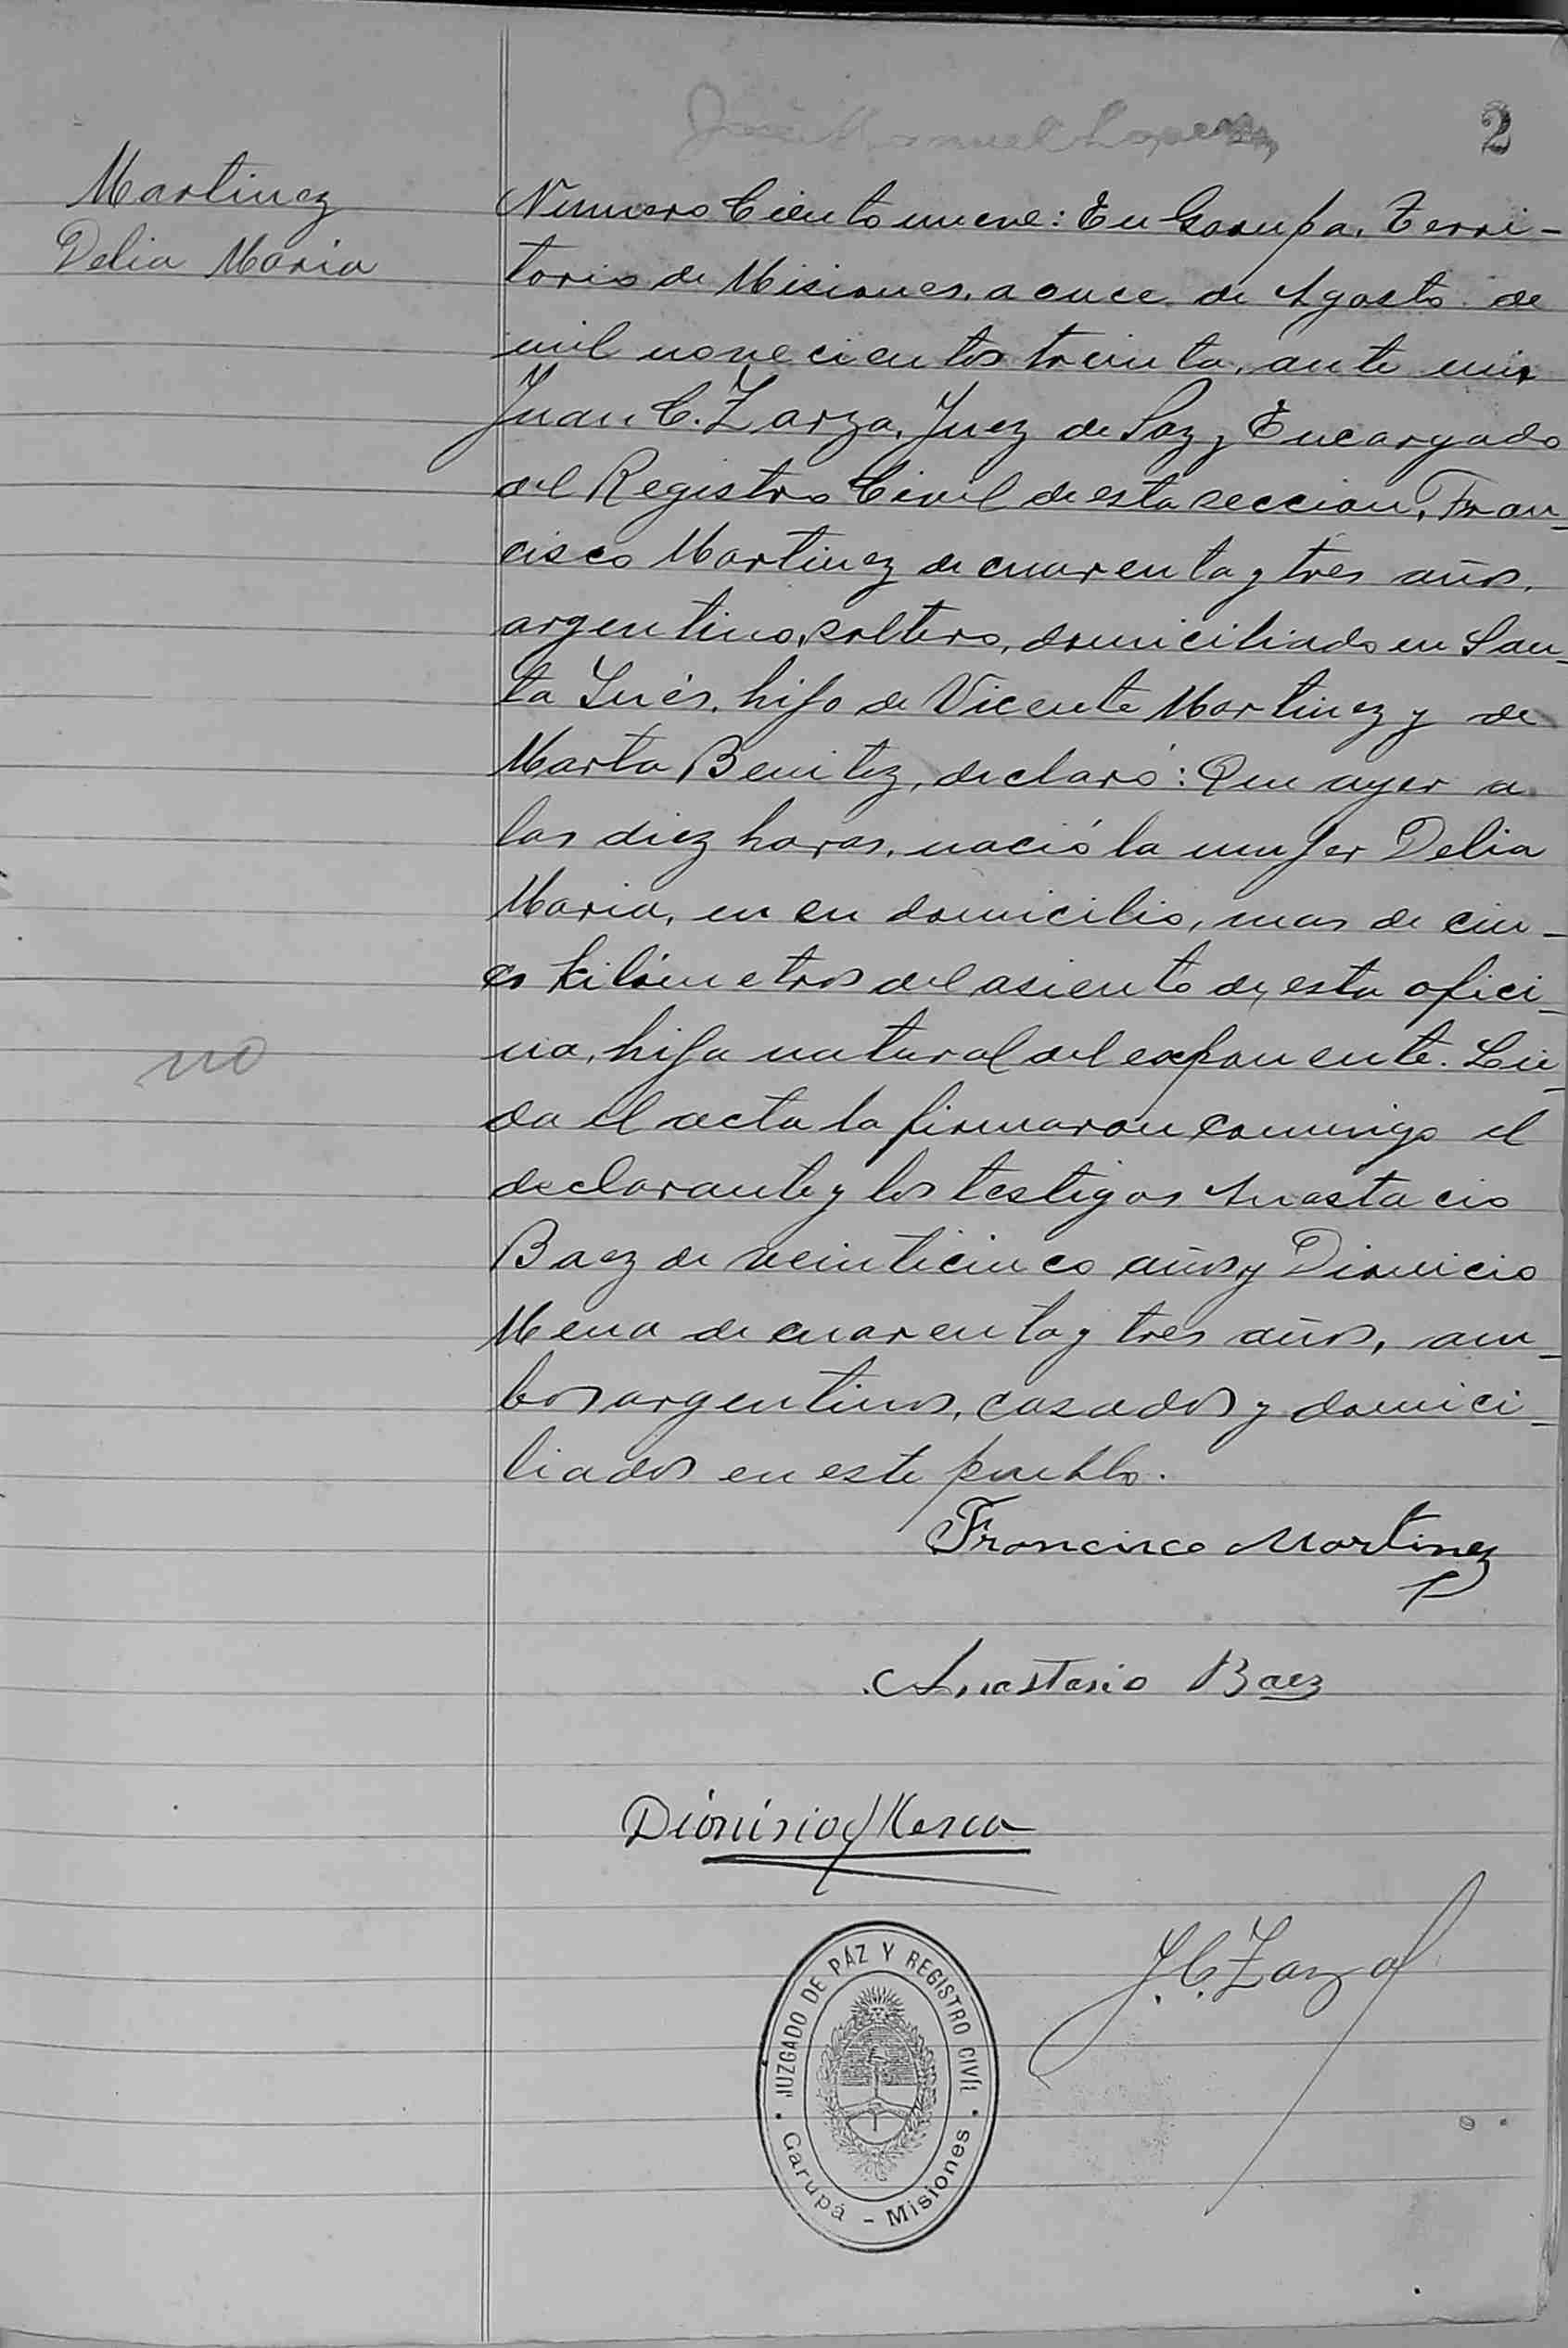 José Manuel Lopez
2
Martinez
Delia Maria
Numero Ciento nueve: En Garupa, Terri-
torio de Misiones, a once de Agosto de
mil novecientos treinta, ante mi
Juan C. Zarza, Juez de Paz y Encargado
del Registro Civil de esta seccion, Fran-
cisco Martinez de cuarenta y tres años,
argentino, soltero, domiciliado en San-
ta Inés, hijo de Vicente Martinez y de
Marta Benitez, declaró: Que ayer a
las diez horas, nació la mujer Delia
Maria, en su domicilio, mas de cin-
co kilómetros del asiento de esta ofici-
na, hija natural del exponente. Leí-
da el acta la firmaron conmigo el
declarante y los testigos Anastacio
Baez de veinticinco años y Dionicio
Mena de cuarenta y tres años, am-
bos argentinos, casados y domici-
liados en este pueblo.
no
Francisco Martinez
Anastasio Baez
Dionisio Mena
J. C. Zarza
JUZGADO DE PÁZ Y REGISTRO CIVIL
Garupá - Misiones